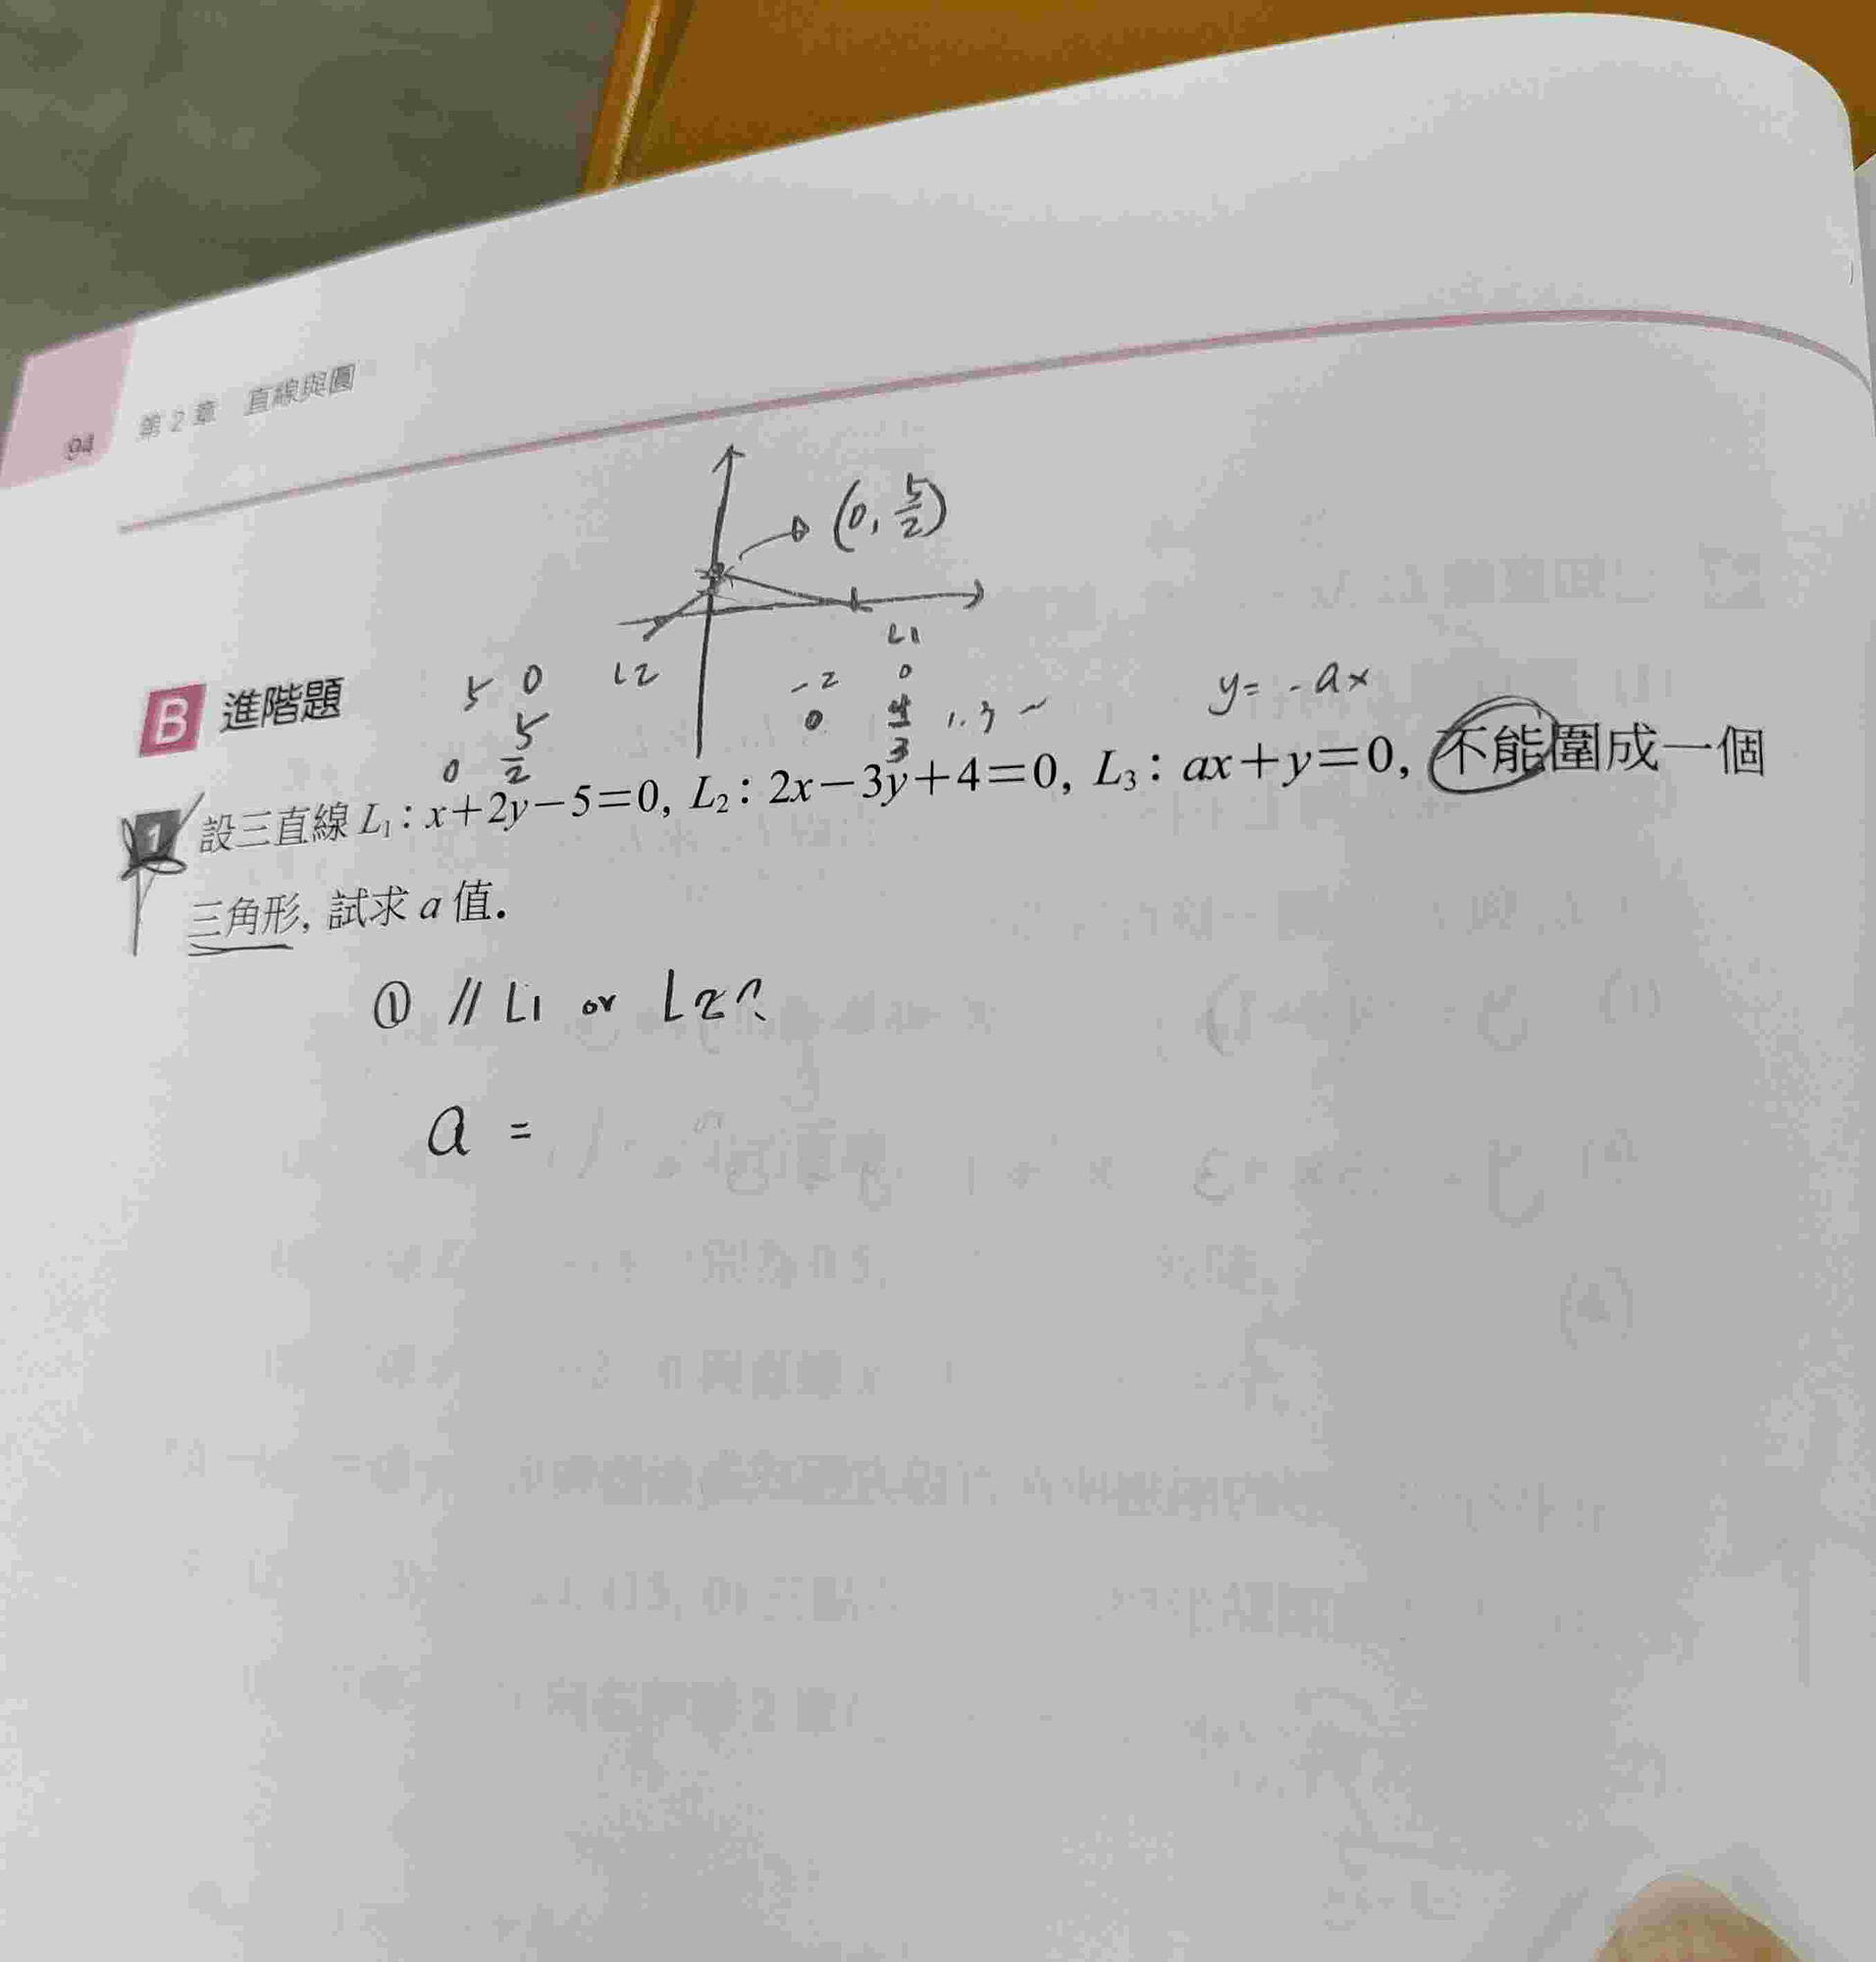 94 第2章 直線與圓
(0, 5/2)
L1
L2
B 進階題
5 0
0 5/2
-2 0
0 4/3 1.3~
y = -ax
1 設三直線 L₁：x+2y−5=0, L₂：2x−3y+4=0, L₃：ax+y=0, 不能圍成一個
三角形, 試求 a 值.
① // L1 or L2?
a =